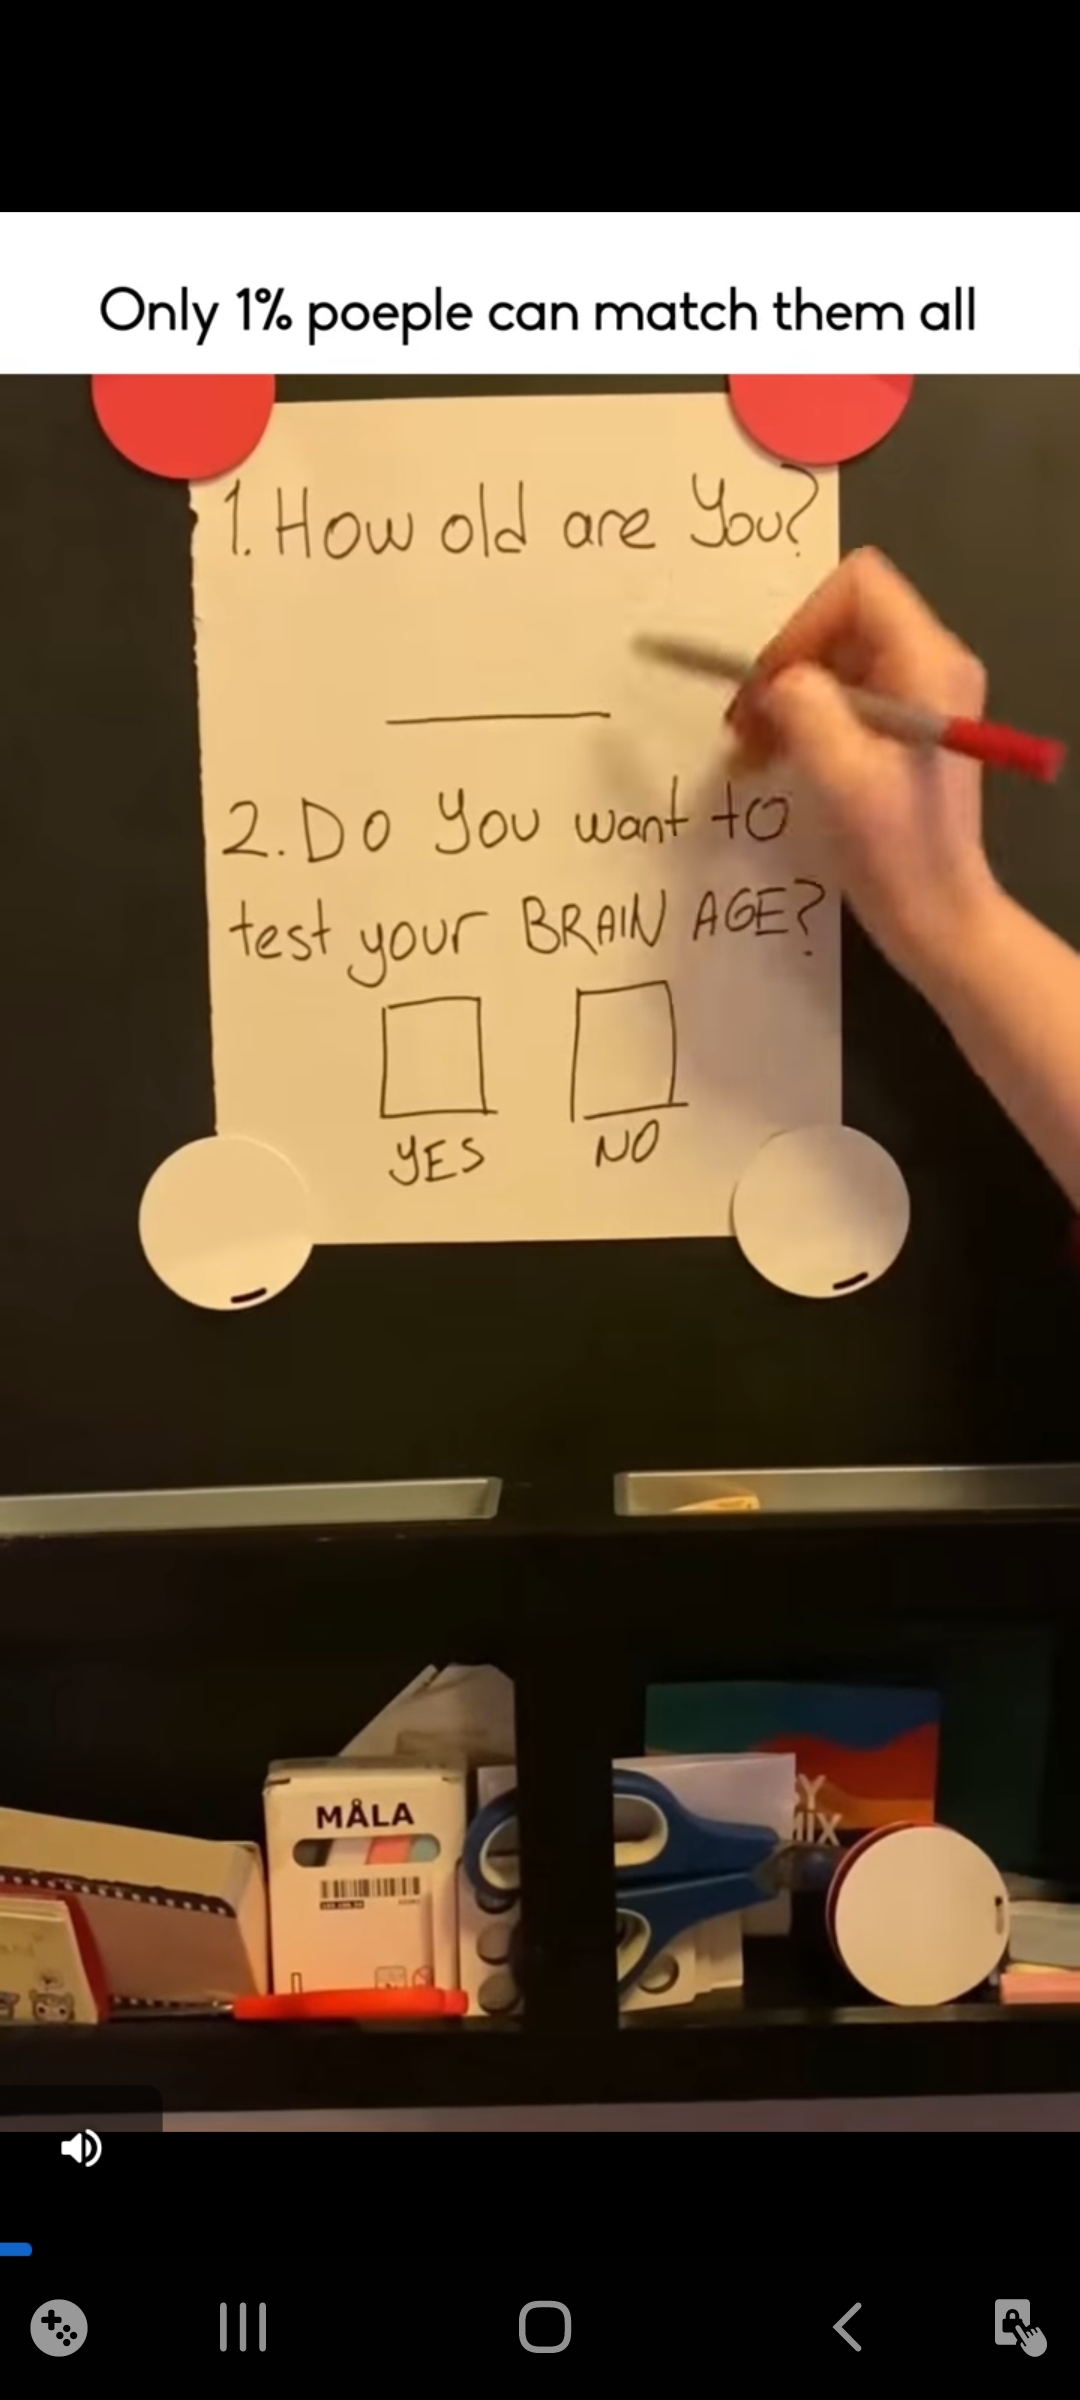 Only 1% poeple can match them all
1. How old are You?
2. Do You want to
test your BRAIN AGE?
YES NO
MÅLA